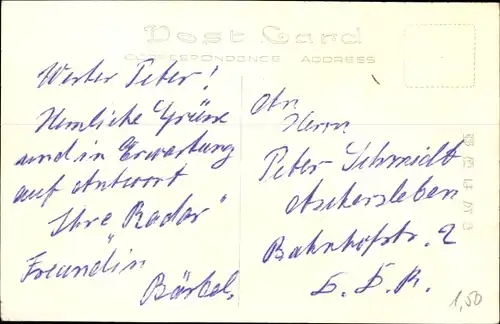 Post Card
CORRESPONDENCE ADDRESS
Werter Peter!
Herzliche Grüsse
und in Erwartung
auf Antwort
Ihre "Radar"
Freundin
Bärbel.
An
Herrn
Peter Schmidt
Aschersleben
Bahnhofstr. 2
D.D.R.
1,50